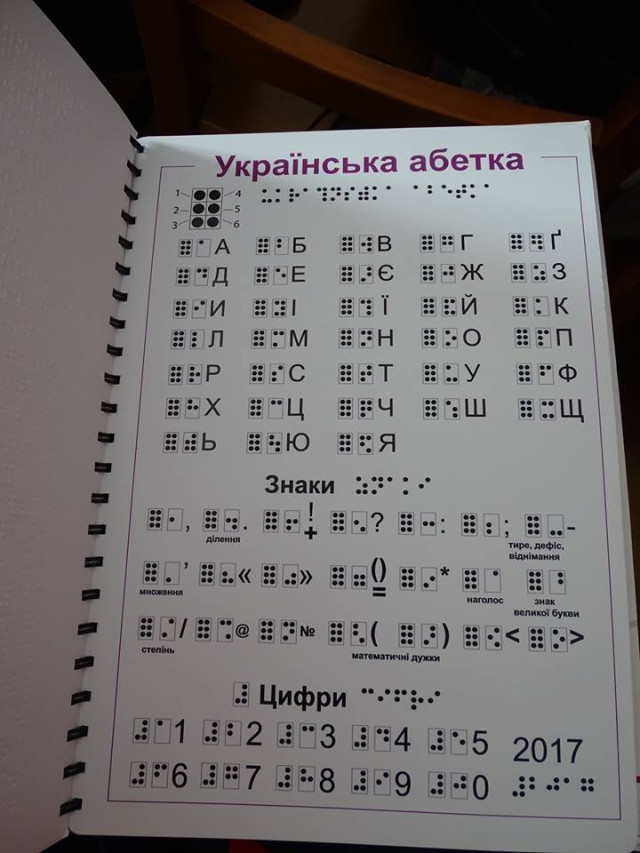 Українська абетка
1 4
2 5
3 6
А Б В Г Ґ
Д Е Є Ж З
И І Ї Й К
Л М Н О П
Р С Т У Ф
Х Ц Ч Ш Щ
Ь Ю Я
Знаки
, . ! + ? : ; -
ділення тире, дефіс, віднімання
' « » () = *
множення наголос знак великої букви
/ @ № ( ) < >
степінь математичні дужки
Цифри
1 2 3 4 5 2017
6 7 8 9 0